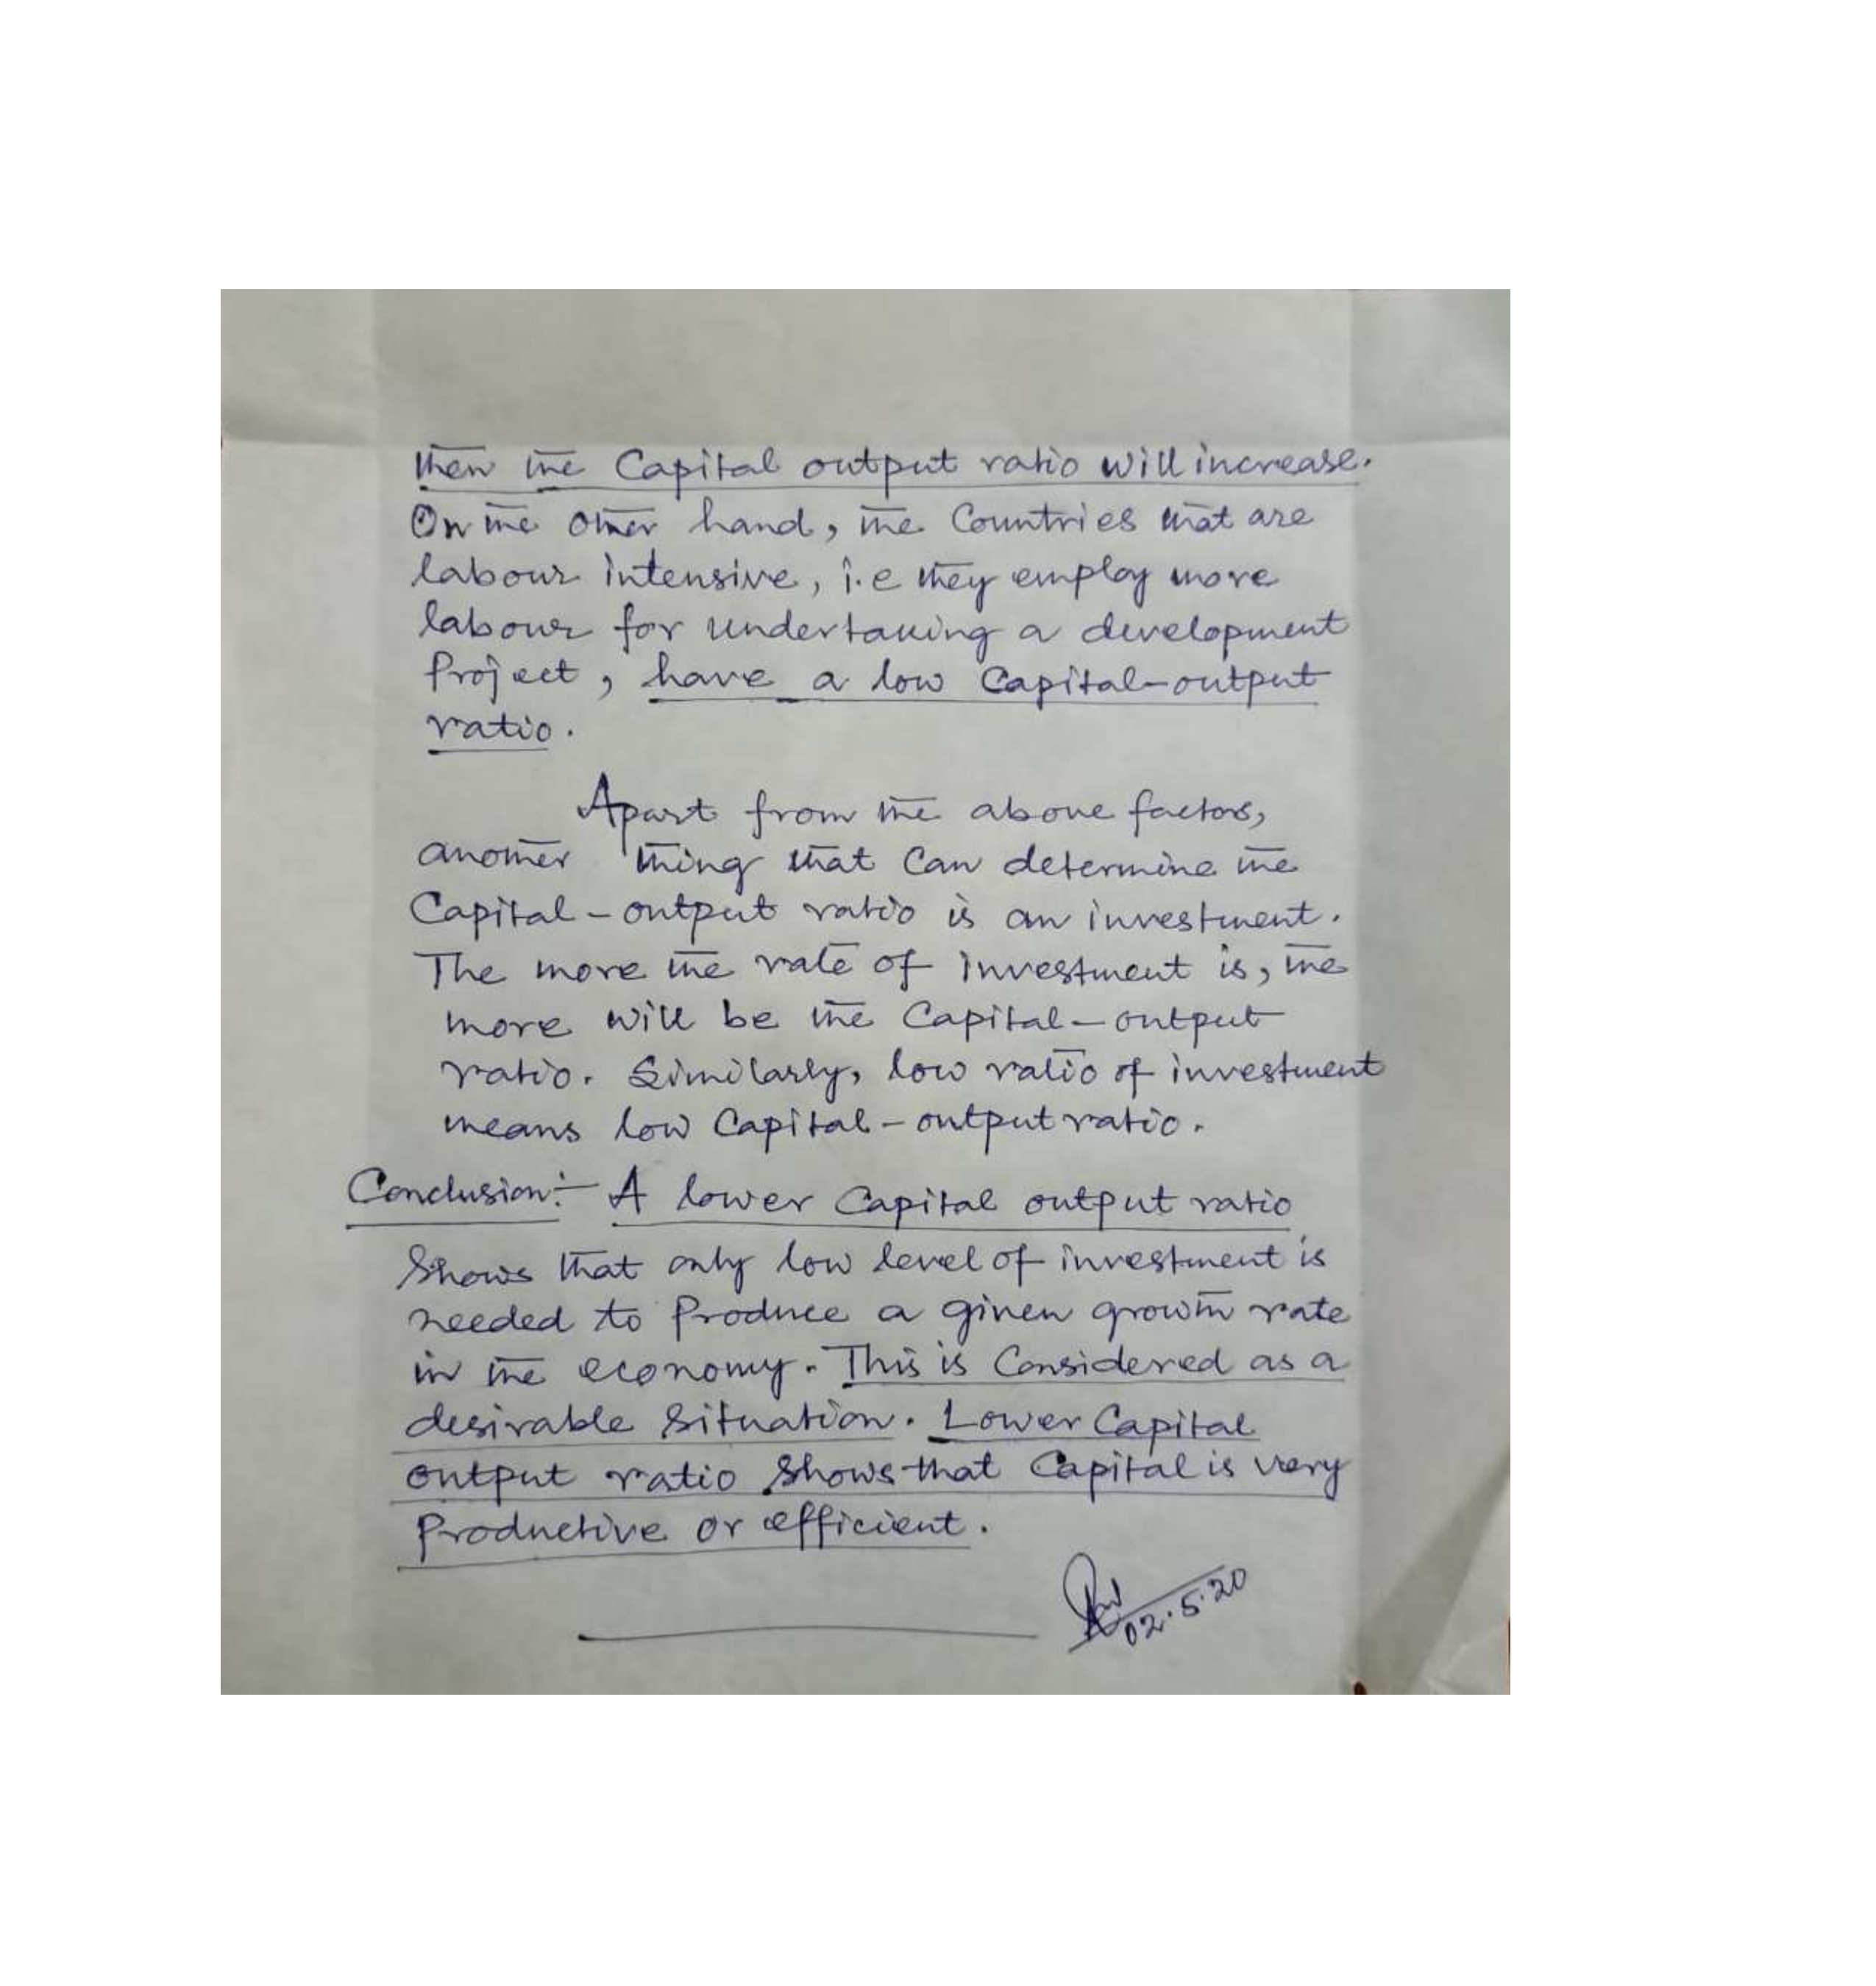 then the Capital output ratio will increase.
On the other hand, the Countries that are
labour intensive, i.e they employ more
labour for undertaking a development
Project, have a low Capital-output
ratio.
Apart from the above factors,
another thing that Can determine the
Capital-output ratio is an investment.
The more the rate of investment is, the
more will be the Capital-output
ratio. Similarly, low ratio of investment
means low Capital-output ratio.
Conclusion:- A lower Capital output ratio
Shows that only low level of investment is
needed to Produce a given growth rate
in the economy. This is Considered as a
desirable Situation. Lower Capital
output ratio Shows that Capital is very
Productive or efficient.
02.5.20